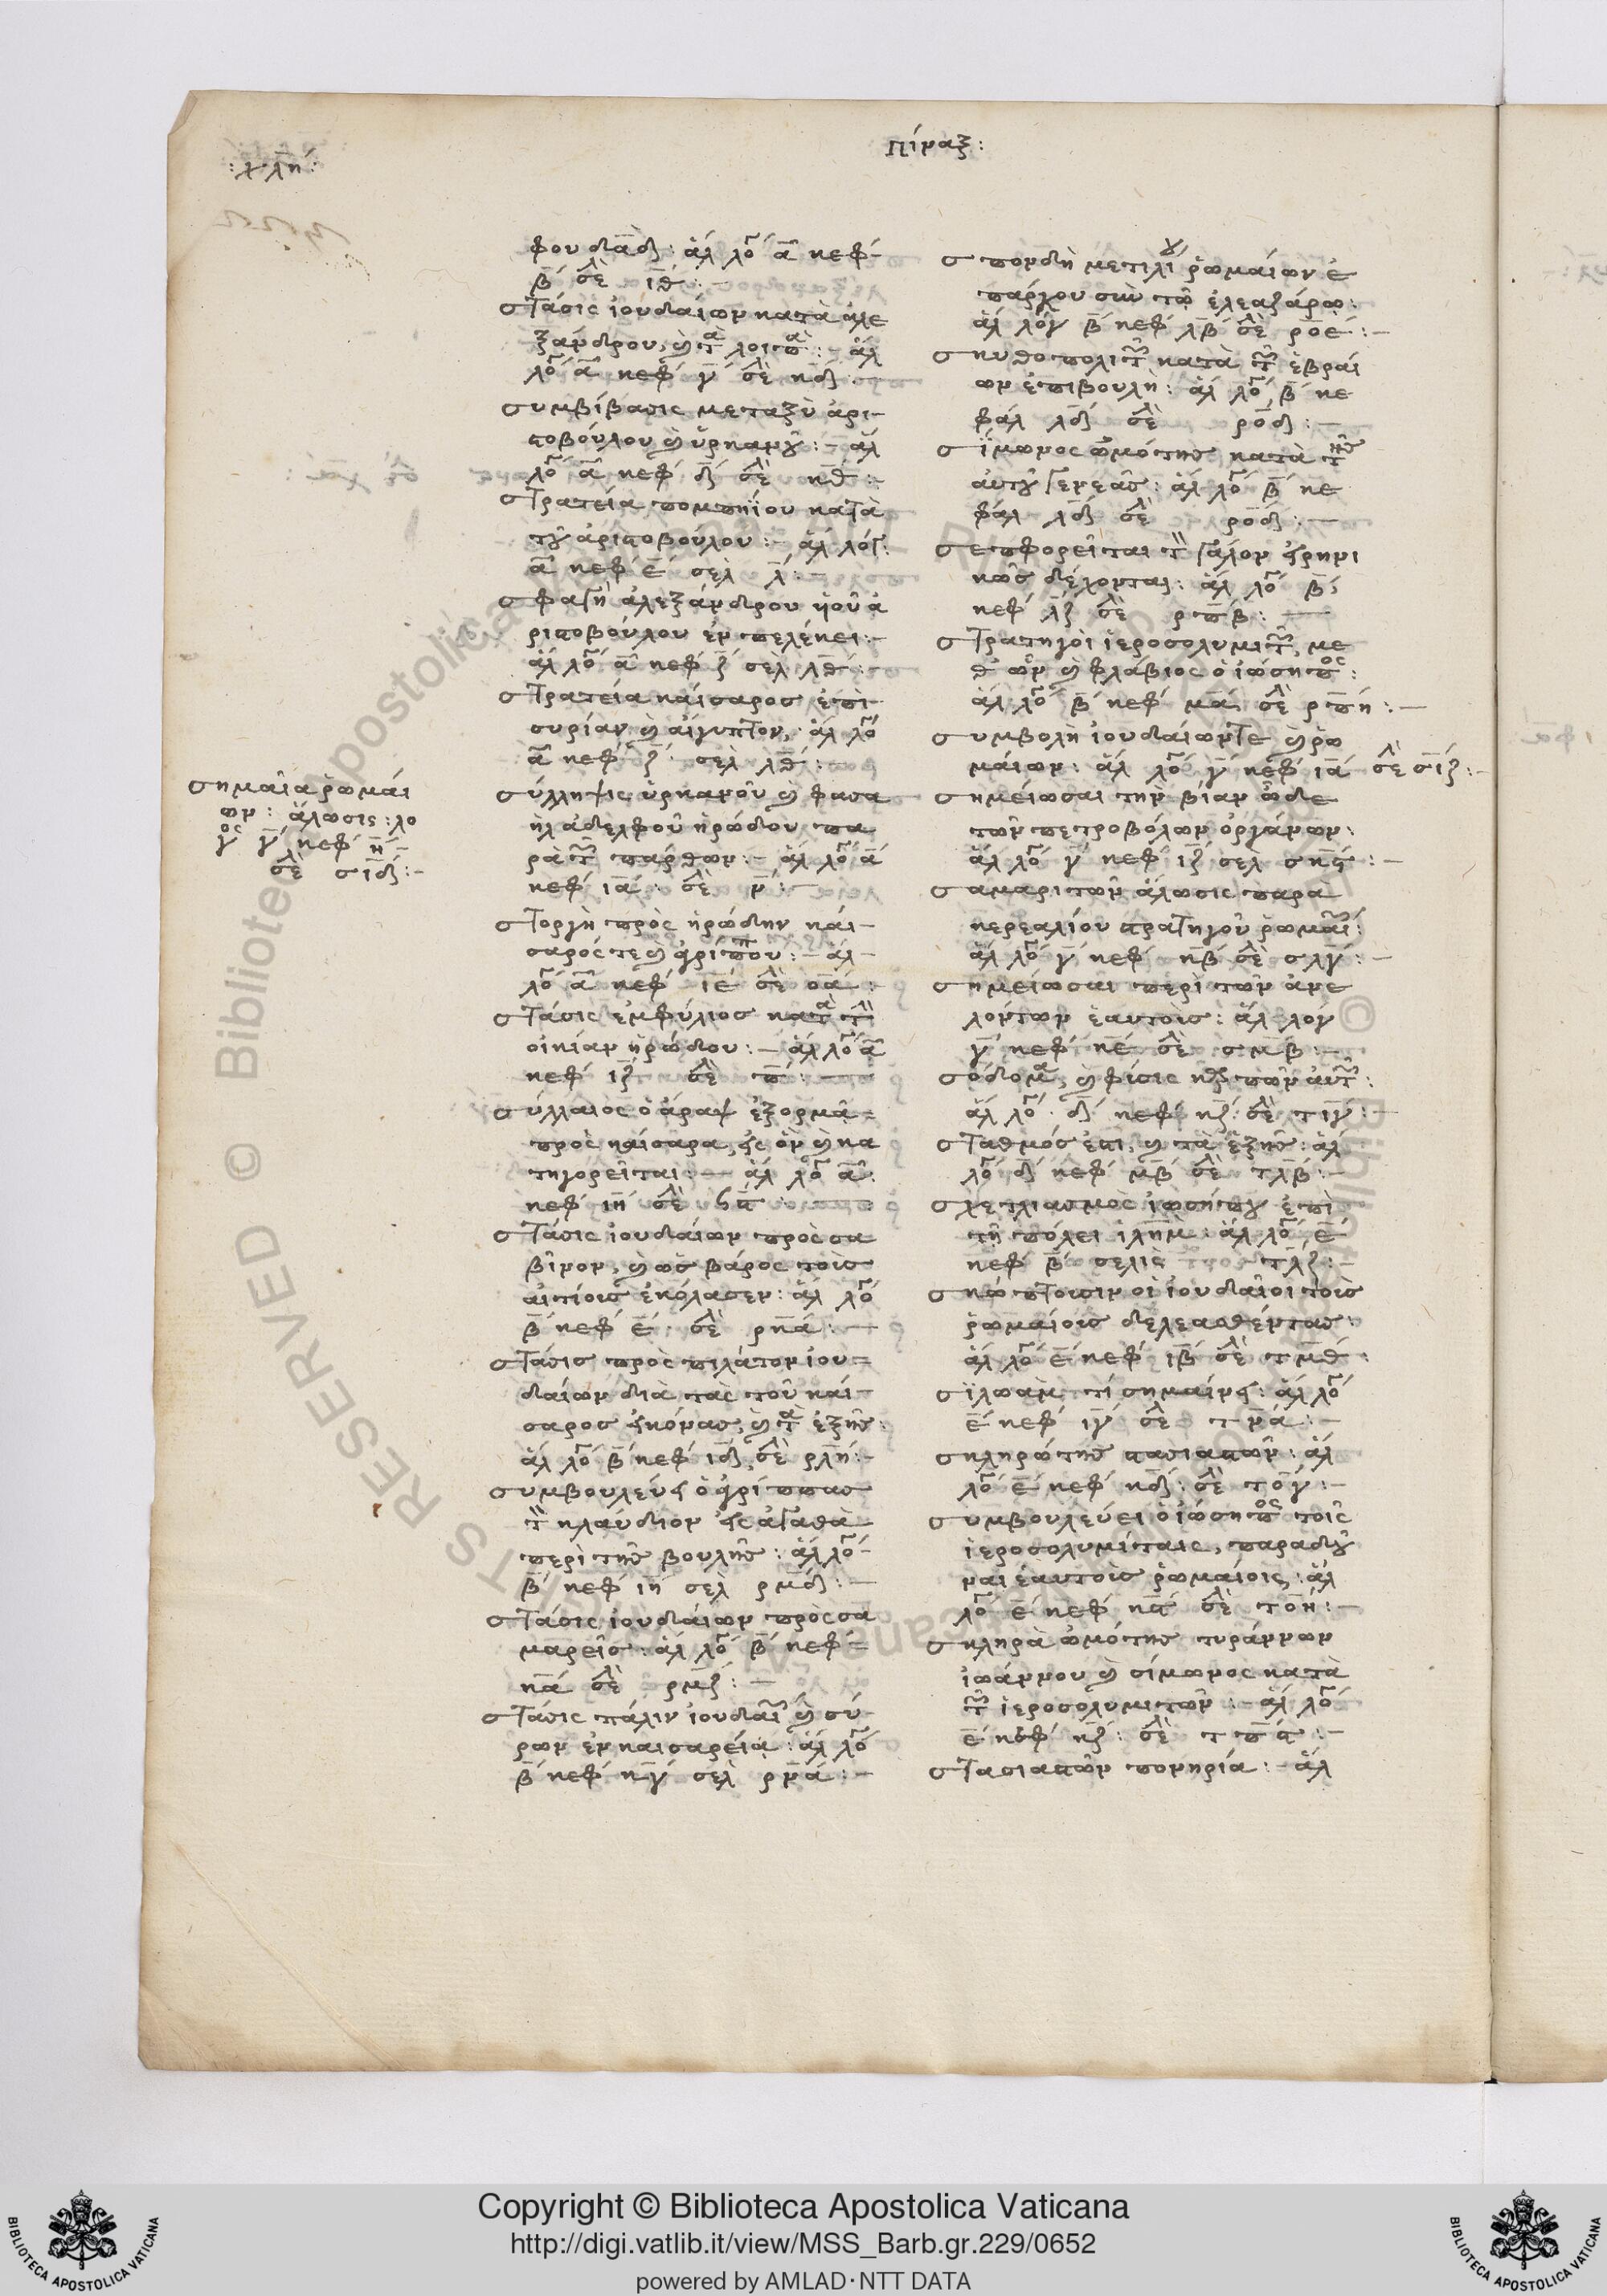 Πίναξ:
: χλη :
φου διαδ: ἁλ λό α κεφ
β σε ιθ :
στάσις ἰουδαίων κατὰ ἀλε
ξάνδρου, καὶ τα λοιπα :- ἁλ
λό α κεφ γ σε κδ :
συμβίβασις μεταξὺ ἀρι-
στοβούλου καὶ ὑρκανοῦ :- ἁλ
λό α κεφ δ σε κθ :-
στρατεία πομπηίου κατὰ
τοῦ ἀριστοβούλου :- ἁλ λόγ:
α κεφ ε σελ λ :-
σφαγὴ ἀλεξάνδρου υἱοῦ ἀ
ριστοβούλου ἐν πελέκει :-
ἁλ λό α κεφ ζ σελ λθ :-
στρατεία καίσαρος ἐπὶ
συρίαν καὶ αἴγυπτον, ἁλ λό
α κεφ ζ σελ λθ :-
σημαία ῥωμαί
ων : ἅλωσις : λό
γος γ κεφ η -
σε σιδ :-
σύλληψις ὑρκανοῦ καὶ φασα
ὴλ ἀδελφοῦ ἡρώδου πα
ρὰ τῶν πάρθων :- ἁλ λό α
κεφ ια : σε ν :-
στοργὴ πρὸς ἡρώδην καί-
σαρός τε καὶ ἀγρίππου :- ἁλ-
λό α κεφ ιε σε οα :
στάσις ἐμφύλιος κατὰ τὴν
οἰκίαν ἡρώδου :- ἁλ λό α
κεφ ιζ σε π :-
σύλλαιος ὁ ἄραψ ἐξορμᾶ =
πρὸς καίσαρα, εἰς ὃν καὶ κα
τηγορεῖται :- ἁλ λό α :
κεφ ιη σε
στάσις ἰουδαίων πρὸς σα
βῖνον, καὶ ὡς βάρος τοῖς
αἰτίοις ἐκόλασεν : ἁλ λό
β κεφ ε σε ρκα :-
στάσις πρὸς πιλάτον ἰου =
δαίων διὰ τὰς τοῦ καί-
σαρος εἰκόνας, καὶ τὰ ἑξῆς :
ἁλ λό β κεφ ιδ, σε ρλη :-
συμβουλεύει ὁ ἀγρίππας
τὸν κλαύδιον εἰς ἀγαθὰ
περὶ τῆς βουλῆς : ἁλ λό-
β κεφ ιη σελ ρμδ :-
στάσις ἰουδαίων πρὸς σα
μαρεῖς : ἁλ λό β κεφ =
κα σε ρμζ : -
στάσις πάλιν ἰουδαίων καὶ σύ-
ρων ἐν καισαρείᾳ : ἁλ λό
β κεφ κγ σελ ρνα :-
σπονδὴ μετιλίου ῥωμαίων ἐ
πάρχου σὺν τῷ ἐλεαζάρῳ :
ἁλ λόγ β κεφ λβ σε ροε :-
σκυθοπολιτῶν κατὰ τῶν ἑβραί
ων ἐπιβουλή : ἁλ λό β κε
φάλ λδ σε ροδ :-
σίμωνος ὠμότης κατὰ τῆς
αὐτοῦ γενεᾶς : ἁλ λό β κε
φάλ λδ σε ροδ :-
σεπφορεῖται τὸν γάλλον εἰρηνι
κῶς δέχονται : ἁλ λό β
κεφ λζ σε ρπβ : -
στρατηγοὶ ἱεροσολυμιτῶν, με
θ' ὧν καὶ φλάβιος ὁ ἰώσηπος :
ἁλ λό β κεφ μα, σε ρπη :-
συμβολὴ ἰουδαίων τε καὶ ῥω
μαίων : ἁλ λό γ κεφ ια σε σιζ :-
σημείωσαι τὴν βίαν ὧδε
τῶν πετροβόλων ὀργάνων :
ἁλ λό γ κεφ ιζ σελ σκϛ :-
σαμαριτῶν ἅλωσις παρα
κερεαλίου στρατηγοῦ ῥωμαί :
ἁλ λό γ κεφ κβ σε σλγ :-
σημείωσαι περὶ τῶν ἀνε
λόντων ἑαυτοῖς : ἁλ λόγ
γ κεφ κε σε σμβ :-
σόδομα, καὶ φύσις καρπῶν αὐτῶν :
ἁλ λό δ κεφ κζ σε τιγ :-
σταθμός ἐστι, καὶ τὰ ἑξῆς : ἁλ
λό δ κεφ μβ σε τλβ :-
σχετλιασμὸς ἰωσήπου ἐπὶ
τῇ πόλει ἱλημ : ἁλ λό ε
κεφ β σελὶς τλζ :-
σκώπτουσιν οἱ ἰουδαῖοι τοὺς
ῥωμαίοις δελεασθέντας :
ἁλ λό ε κεφ ιβ σε τμθ :
σιλωὰμ τί σημαίνει : ἁλ λό
ε κεφ ιγ σε τνα :-
σκληρότης στασιαστῶν : ἁλ
λό ε κεφ κδ : σε τογ :-
συμβουλεύει ὁ ἰώσηπος τοῖς
ἱεροσολυμίταις, παραδοῦ
ναι ἑαυτοὺς ῥωμαίοις : ἁλ
λό ε κεφ κϛ σε τοη :-
σκληρὰ ὠμότης τυράννων
ἰωάννου καὶ σίμωνος κατὰ
τῶν ἱεροσολυμιτῶν :- ἁλ λό
ε κεφ κζ : σε τπϛ :-
στασιαστῶν πονηρία :- ἁλ
Copyright © Biblioteca Apostolica Vaticana
http://digi.vatlib.it/view/MSS_Barb.gr.229/0652
powered by AMLAD·NTT DATA
BIBLIOTECA APOSTOLICA VATICANA
BIBLIOTECA APOSTOLICA VATICANA